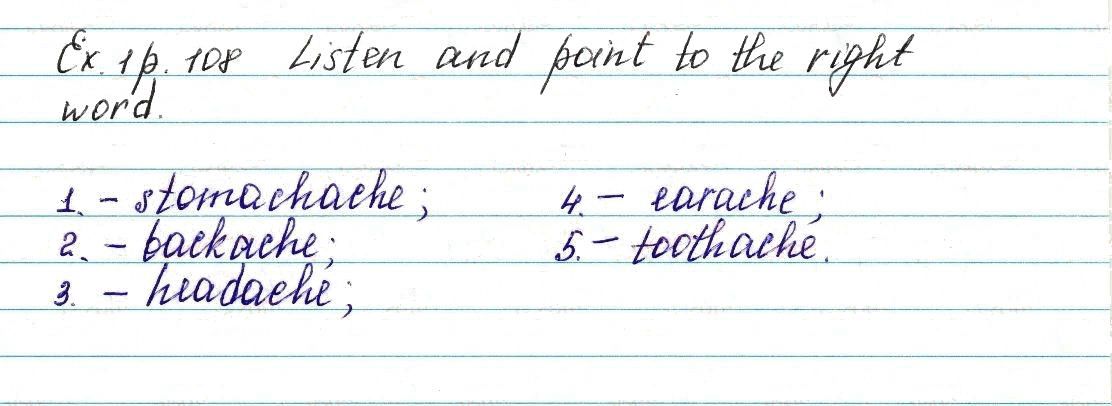 Ex. 1 p. 108 Listen and point to the right
word.
1. - stomachache; 4. - earache;
2. - backache; 5. - toothache.
3. - headache;